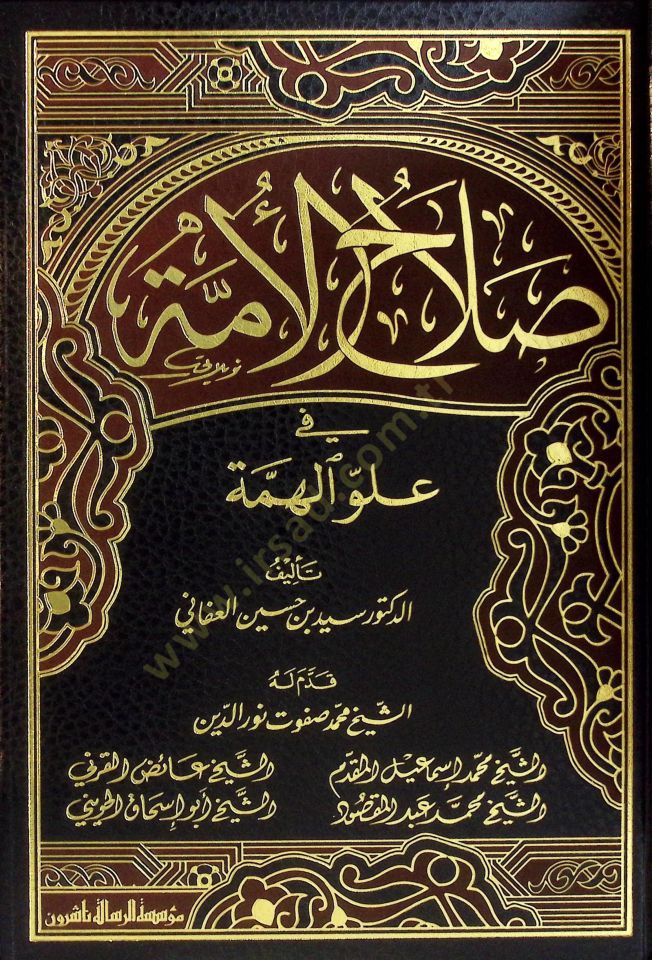 صَلَاحُ الأُمَّة
في
علوّ الهمّة
تأليفُ
الدكتور سيد بن حسين العفاني
قَدَّمَ لَهُ
الشيخ محمد صفوت نور الدين
الشيخ محمد إسماعيل المقدم الشيخ عائض القرني
الشيخ محمد عبد المقصود الشيخ أبو إسحاق الحويني
مؤسسة الرسالة ناشرون
www.irsad.com.tr